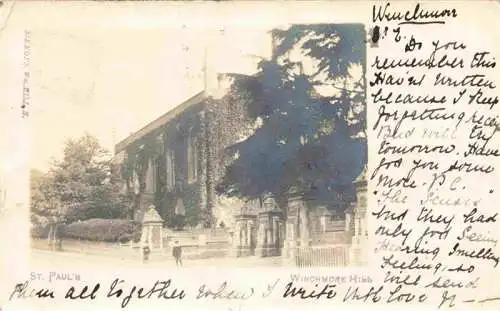 Winchmor
Do you
remember this
Hav'nt written
because I keep
forgetting
But will try
tomorrow. Have
got you some
more P.C.
"The Senses"
but they had
only got Seeing
Hearing Smelling
Feeling, so
Will send
ST. PAUL'S
WINCHMORE HILL
them all together when I write with love